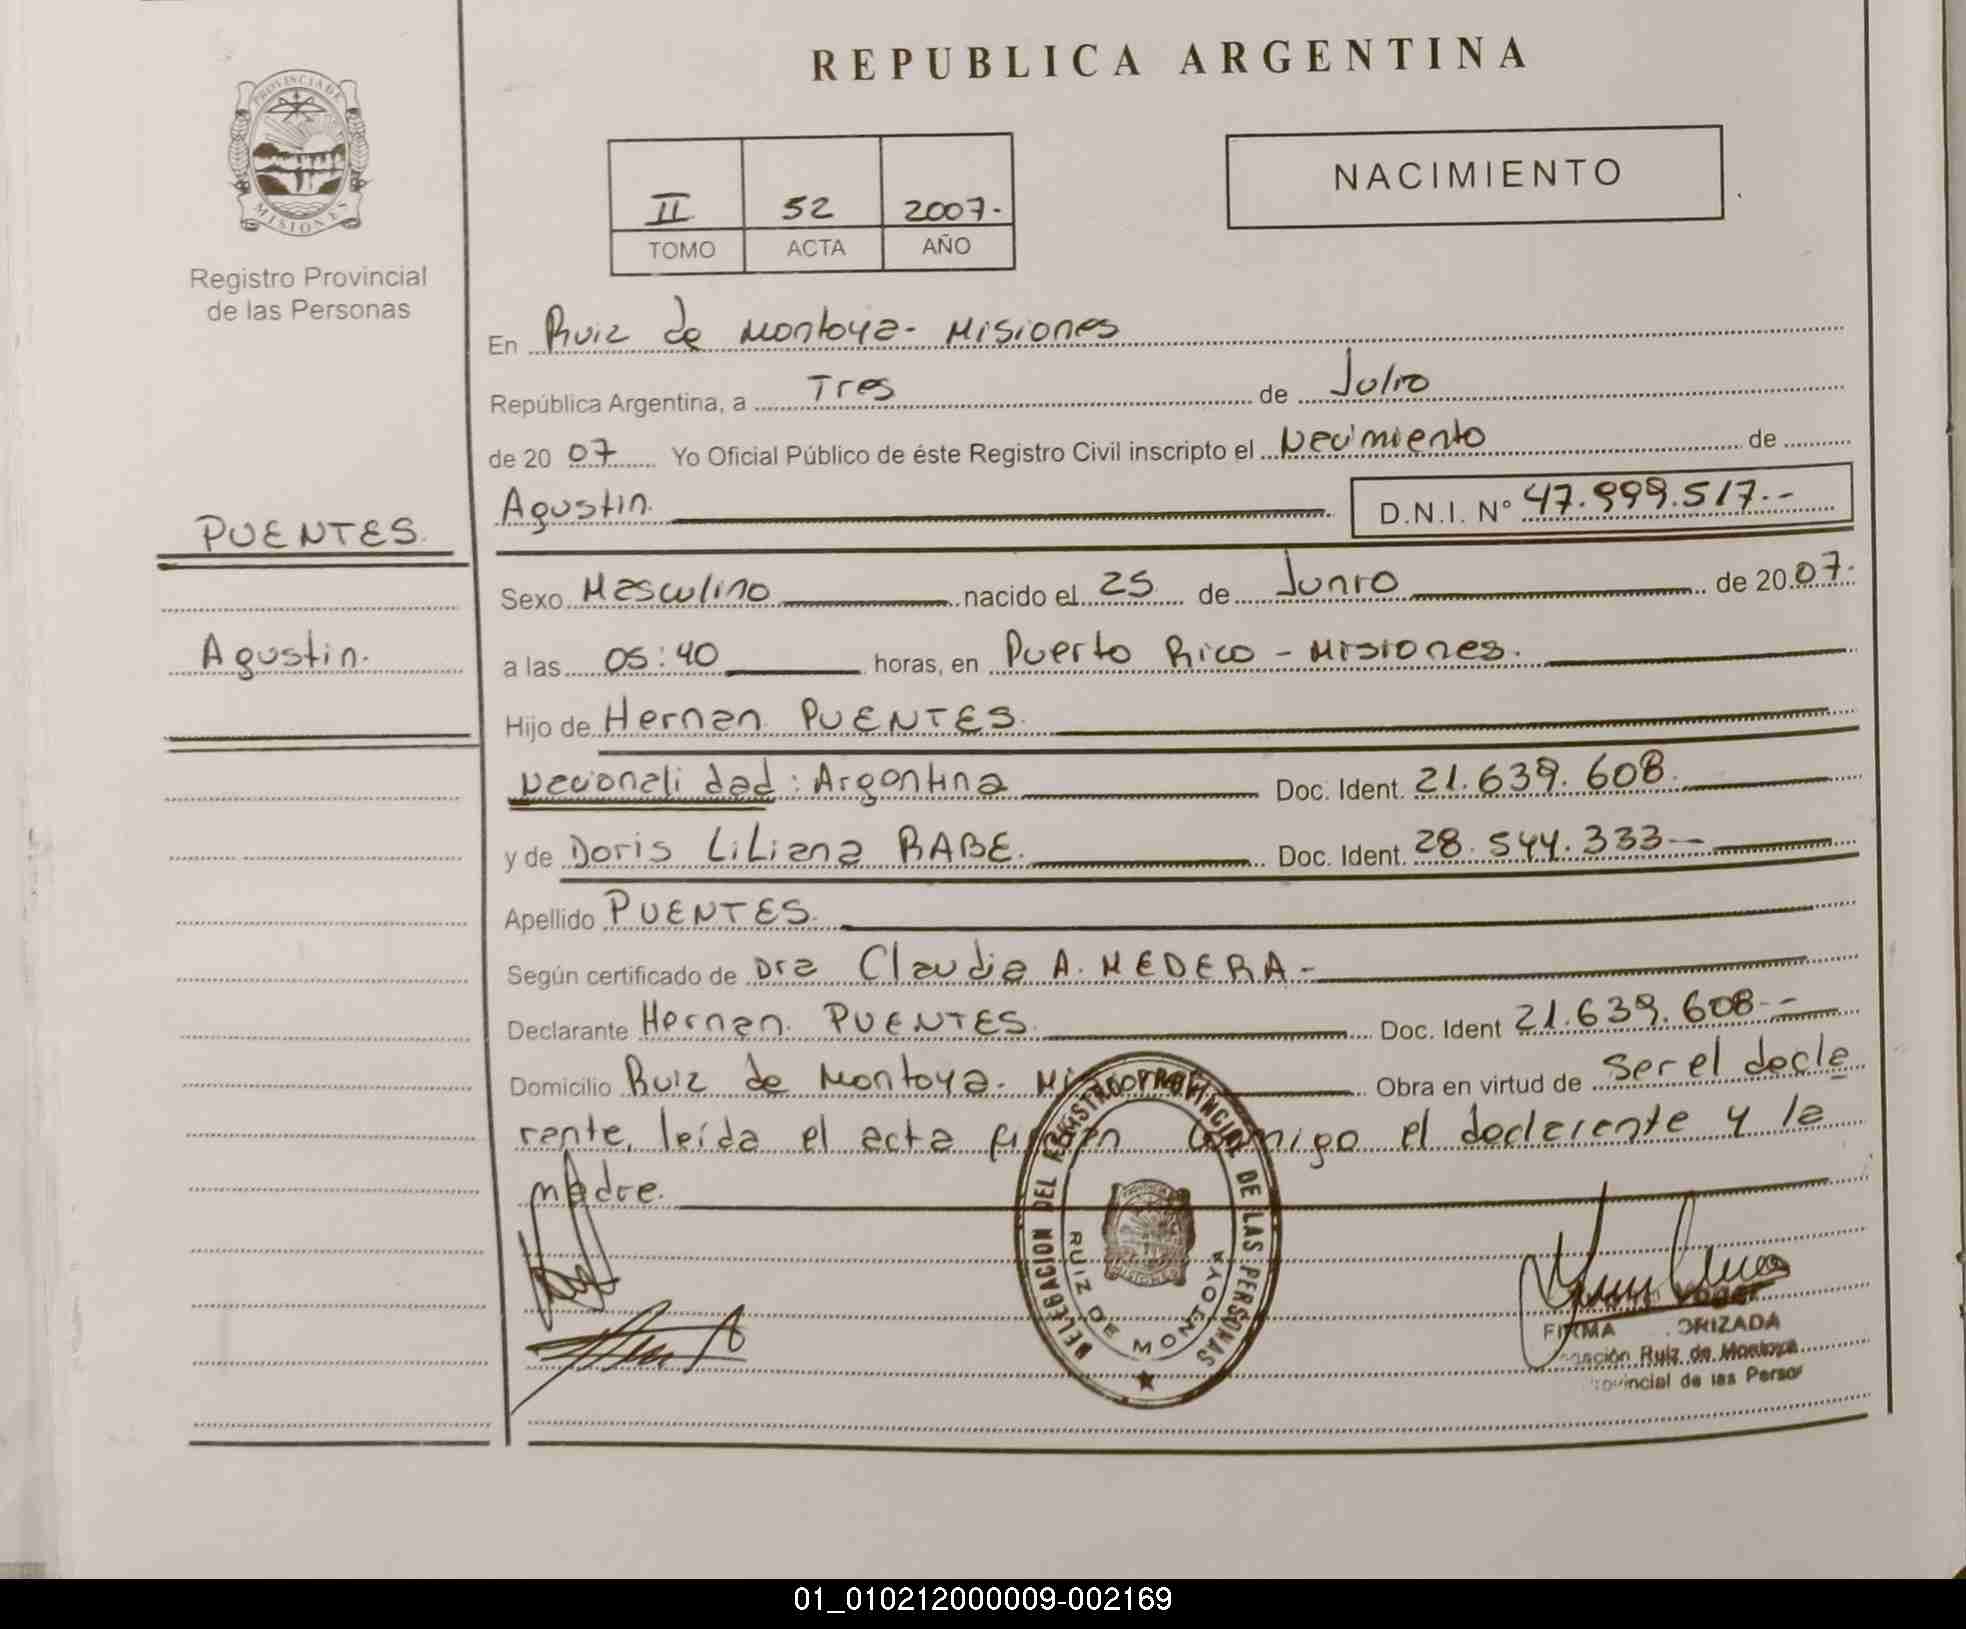 REPUBLICA ARGENTINA
PROVINCIA DE
MISIONES
Registro Provincial
de las Personas
II 52 2007.-
TOMO ACTA AÑO
NACIMIENTO
En Ruiz de Montoya - Misiones
República Argentina, a Tres de Julio
de 2007 Yo Oficial Público de éste Registro Civil inscripto el Nacimiento de
Agustin. D.N.I. Nº 47.999.517.-
PUENTES.
Agustin.
Sexo Masculino nacido el 25 de Junio de 2007.
a las 05:40 horas, en Puerto Rico - Misiones.
Hijo de Hernan PUENTES.
Nacionalidad: Argentina Doc. Ident. 21.639.608.
y de Doris Liliana RABE. Doc. Ident. 28.544.333-
Apellido PUENTES.
Según certificado de Dra Claudia A. MEDERA.-
Declarante Hernan PUENTES. Doc. Ident 21.639.608.--
Domicilio Ruiz de Montoya - Obra en virtud de ser el decla
rante, leída el acta firman conmigo el declarante y la
madre.
DELEGACION DEL REGISTRO PROVINCIAL DE LAS PERSONAS
RUIZ DE MONTOYA
FIRMA ORIZADA
Ruiz de Montoya
rovincial de las Perso
01_010212000009-002169